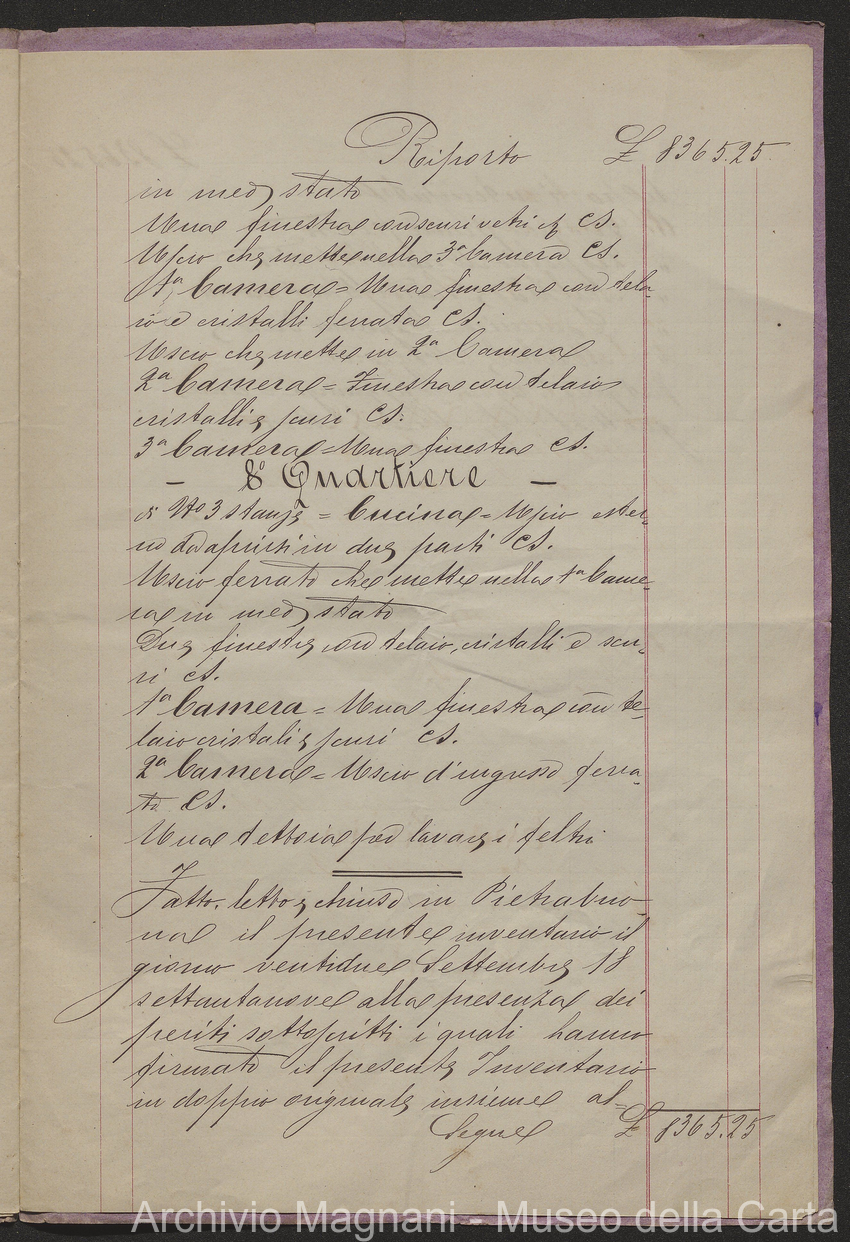 Riporto £ 8365.25
in med stato
Una finestra con scuri vetri CS.
Uscio che mette nella 3a Camera CS.
1a Camera = Una finestra con tela-
io e cristalli ferrata CS.
Uscio che mette in 2a Camera
2a Camera = Finestra con telaio
cristalli e scuri CS.
3a Camera = Una finestra CS.
- 8o Quartiere -
di No 3 stanze = Cucina = Uscio ester-
no da aprirsi in due parti CS.
Uscio ferrato che mette nella 1a Came-
ra in med stato
Due finestre con telaio, cristalli e scu-
ri CS.
1a Camera = Una finestra con te-
laio cristali e scuri CS.
2a Camera = Uscio d'ingresso ferra-
to CS.
Una tettoia per lavare i feltri
Fatto. letto e chiuso in Pietrabuo-
na il presente inventario il
giorno ventidue Settembre 18
settantanove alla presenza dei
periti sottoscritti i quali hanno
firmato il presente Inventario
in doppio originale insieme al-
Segue £ 8365.25
Archivio Magnani - Museo della Carta